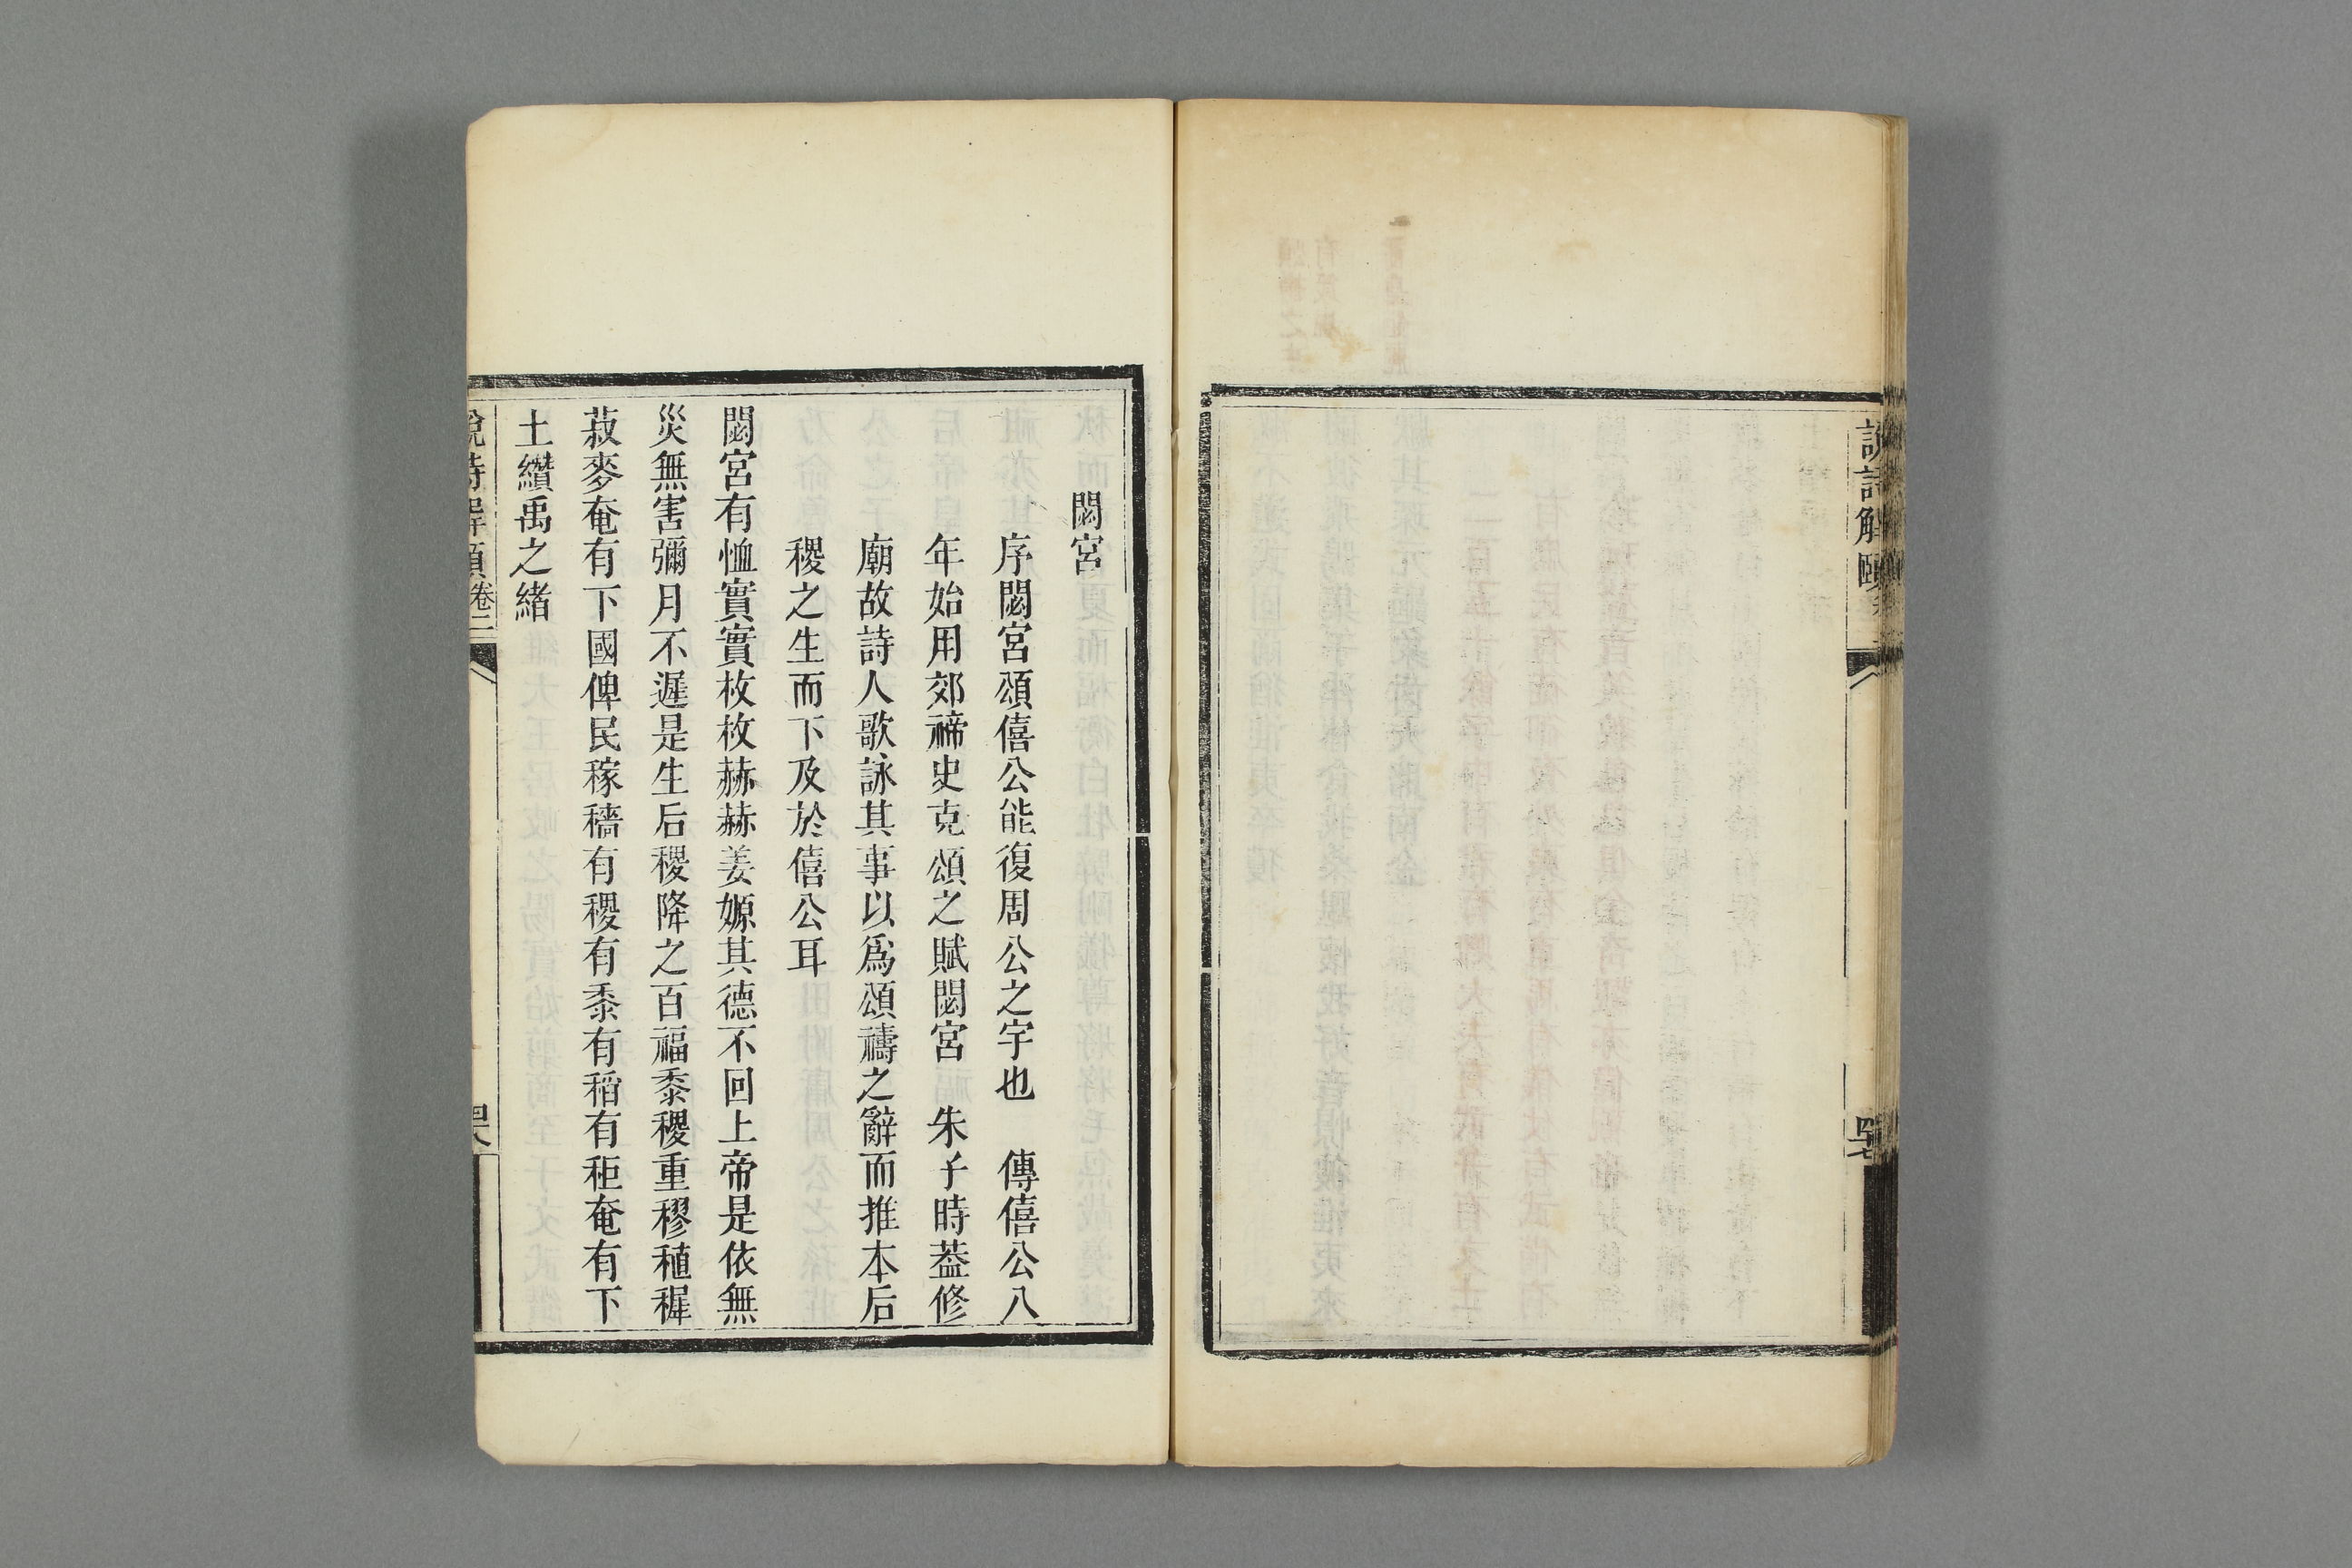 說詩解頤
四七
閟宮
序閟宮頌僖公能復周公之宇也　傳僖公八
年始用郊禘史克頌之賦閟宮　朱子時葢修
廟故詩人歌詠其事以爲頌禱之辭而推本后
稷之生而下及於僖公耳
閟宮有恤實實枚枚赫赫姜嫄其德不回上帝是依無
災無害彌月不遲是生后稷降之百福黍稷重穋稙稺
菽麥奄有下國俾民稼穡有稷有黍有稻有秬奄有下
土纘禹之緒
說詩解頤卷二
四八